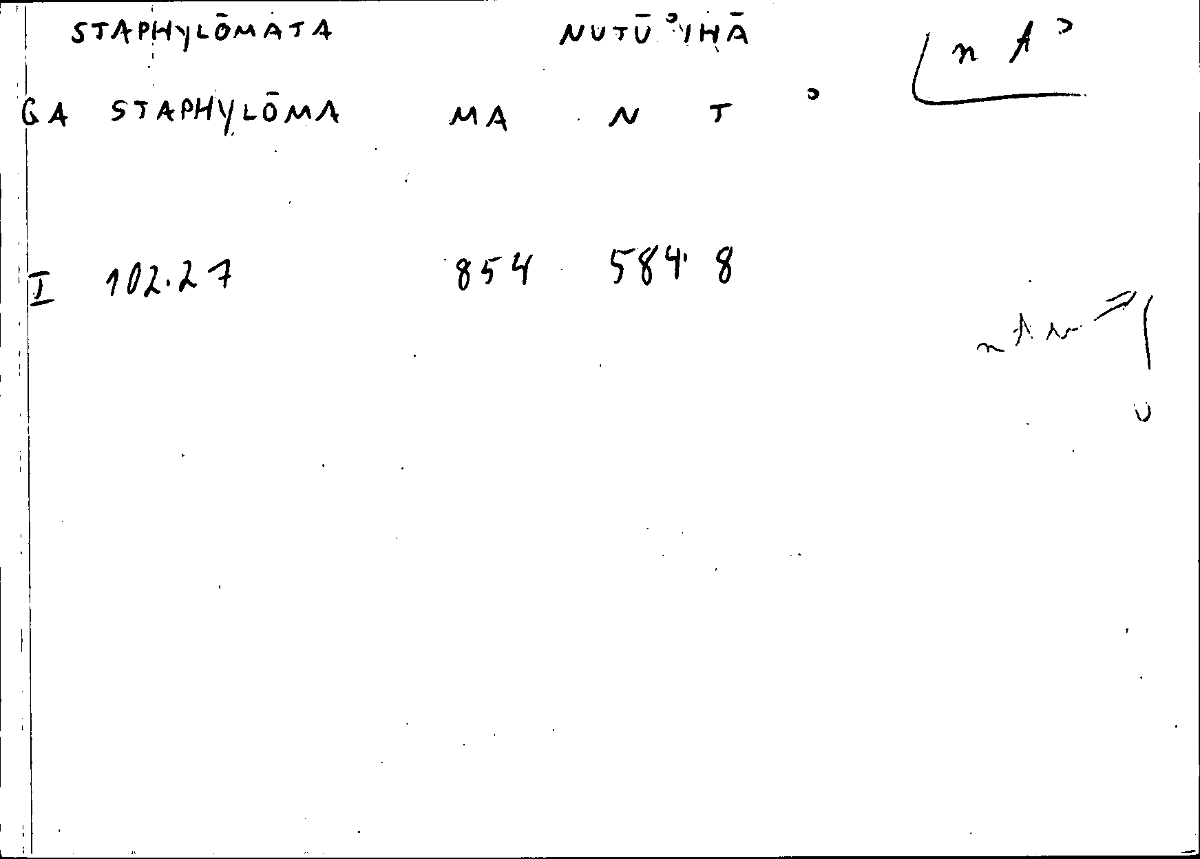 STAPHYLŌMATA NUTŪʾIHĀ n t ʾ
GA STAPHYLŌMA MA N T ʾ
I 102.27 854 584 8